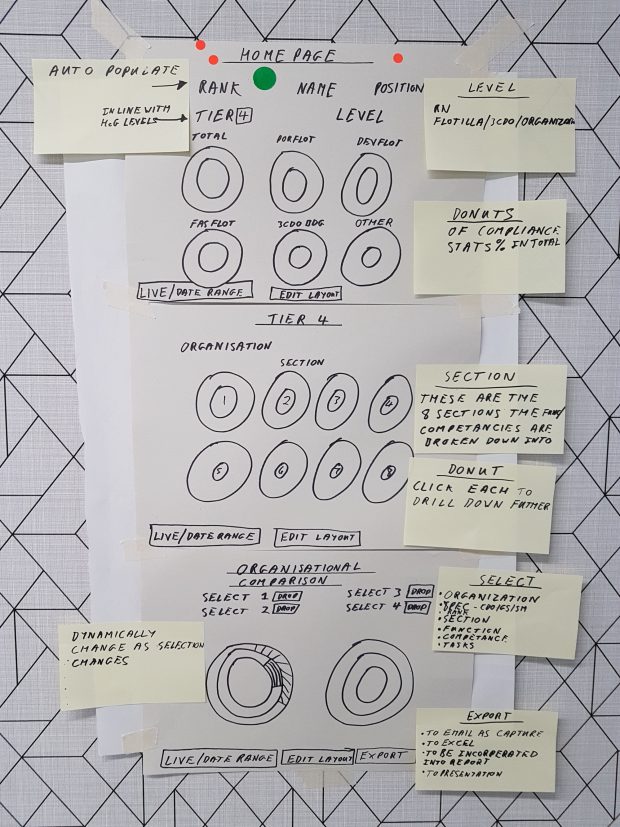 HOME PAGE
AUTO POPULATE
IN LINE WITH
LEVELS
RANK NAME POSITION
TIER 4 LEVEL
TOTAL PORFLOT DEVFLOT
FASFLOT 3CDO BDG OTHER
LIVE/DATE RANGE EDIT LAYOUT
LEVEL
RN
FLOTILLA/3CDO/
DONUTS
OF COMPLIANCE
STATS % IN TOTAL
TIER 4
ORGANISATION
SECTION
1 2 3 4
5 6 7 8
LIVE/DATE RANGE EDIT LAYOUT
SECTION
THESE ARE THE
8 SECTIONS THE
COMPETANCIES ARE
BROKEN DOWN INTO
DONUT
CLICK EACH TO
DRILL DOWN FURTHER
ORGANISATIONAL
COMPARISON
SELECT 1 DROP SELECT 3 DROP
SELECT 2 DROP SELECT 4 DROP
DYNAMICALLY
CHANGE AS SELECTION
CHANGES
LIVE/DATE RANGE EDIT LAYOUT EXPORT
SELECT
• ORGANIZATION
• SPEC - CDO/GS/SM
• RANK
• SECTION
• FUNCTION
• COMPETANCE
• TASKS
EXPORT
• TO EMAIL AS CAPTURE
• TO EXCEL
• TO BE INCORPERATED
INTO REPORT
• TO PRESENTATION